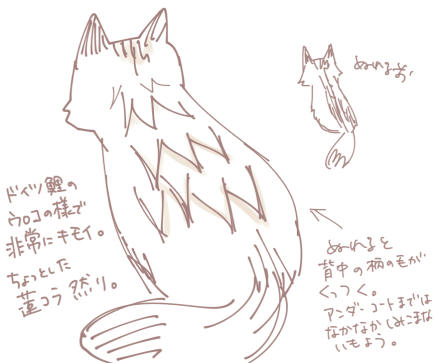 ぬれる前。
ドイツ鯉の
ウロコの様で
非常にキモイ。
ちょっとした
蓮コラ 然り。
ぬれると
背中の柄の毛が
くっつく。
アンダーコートまでは
なかなかしみこまない
いもよう。